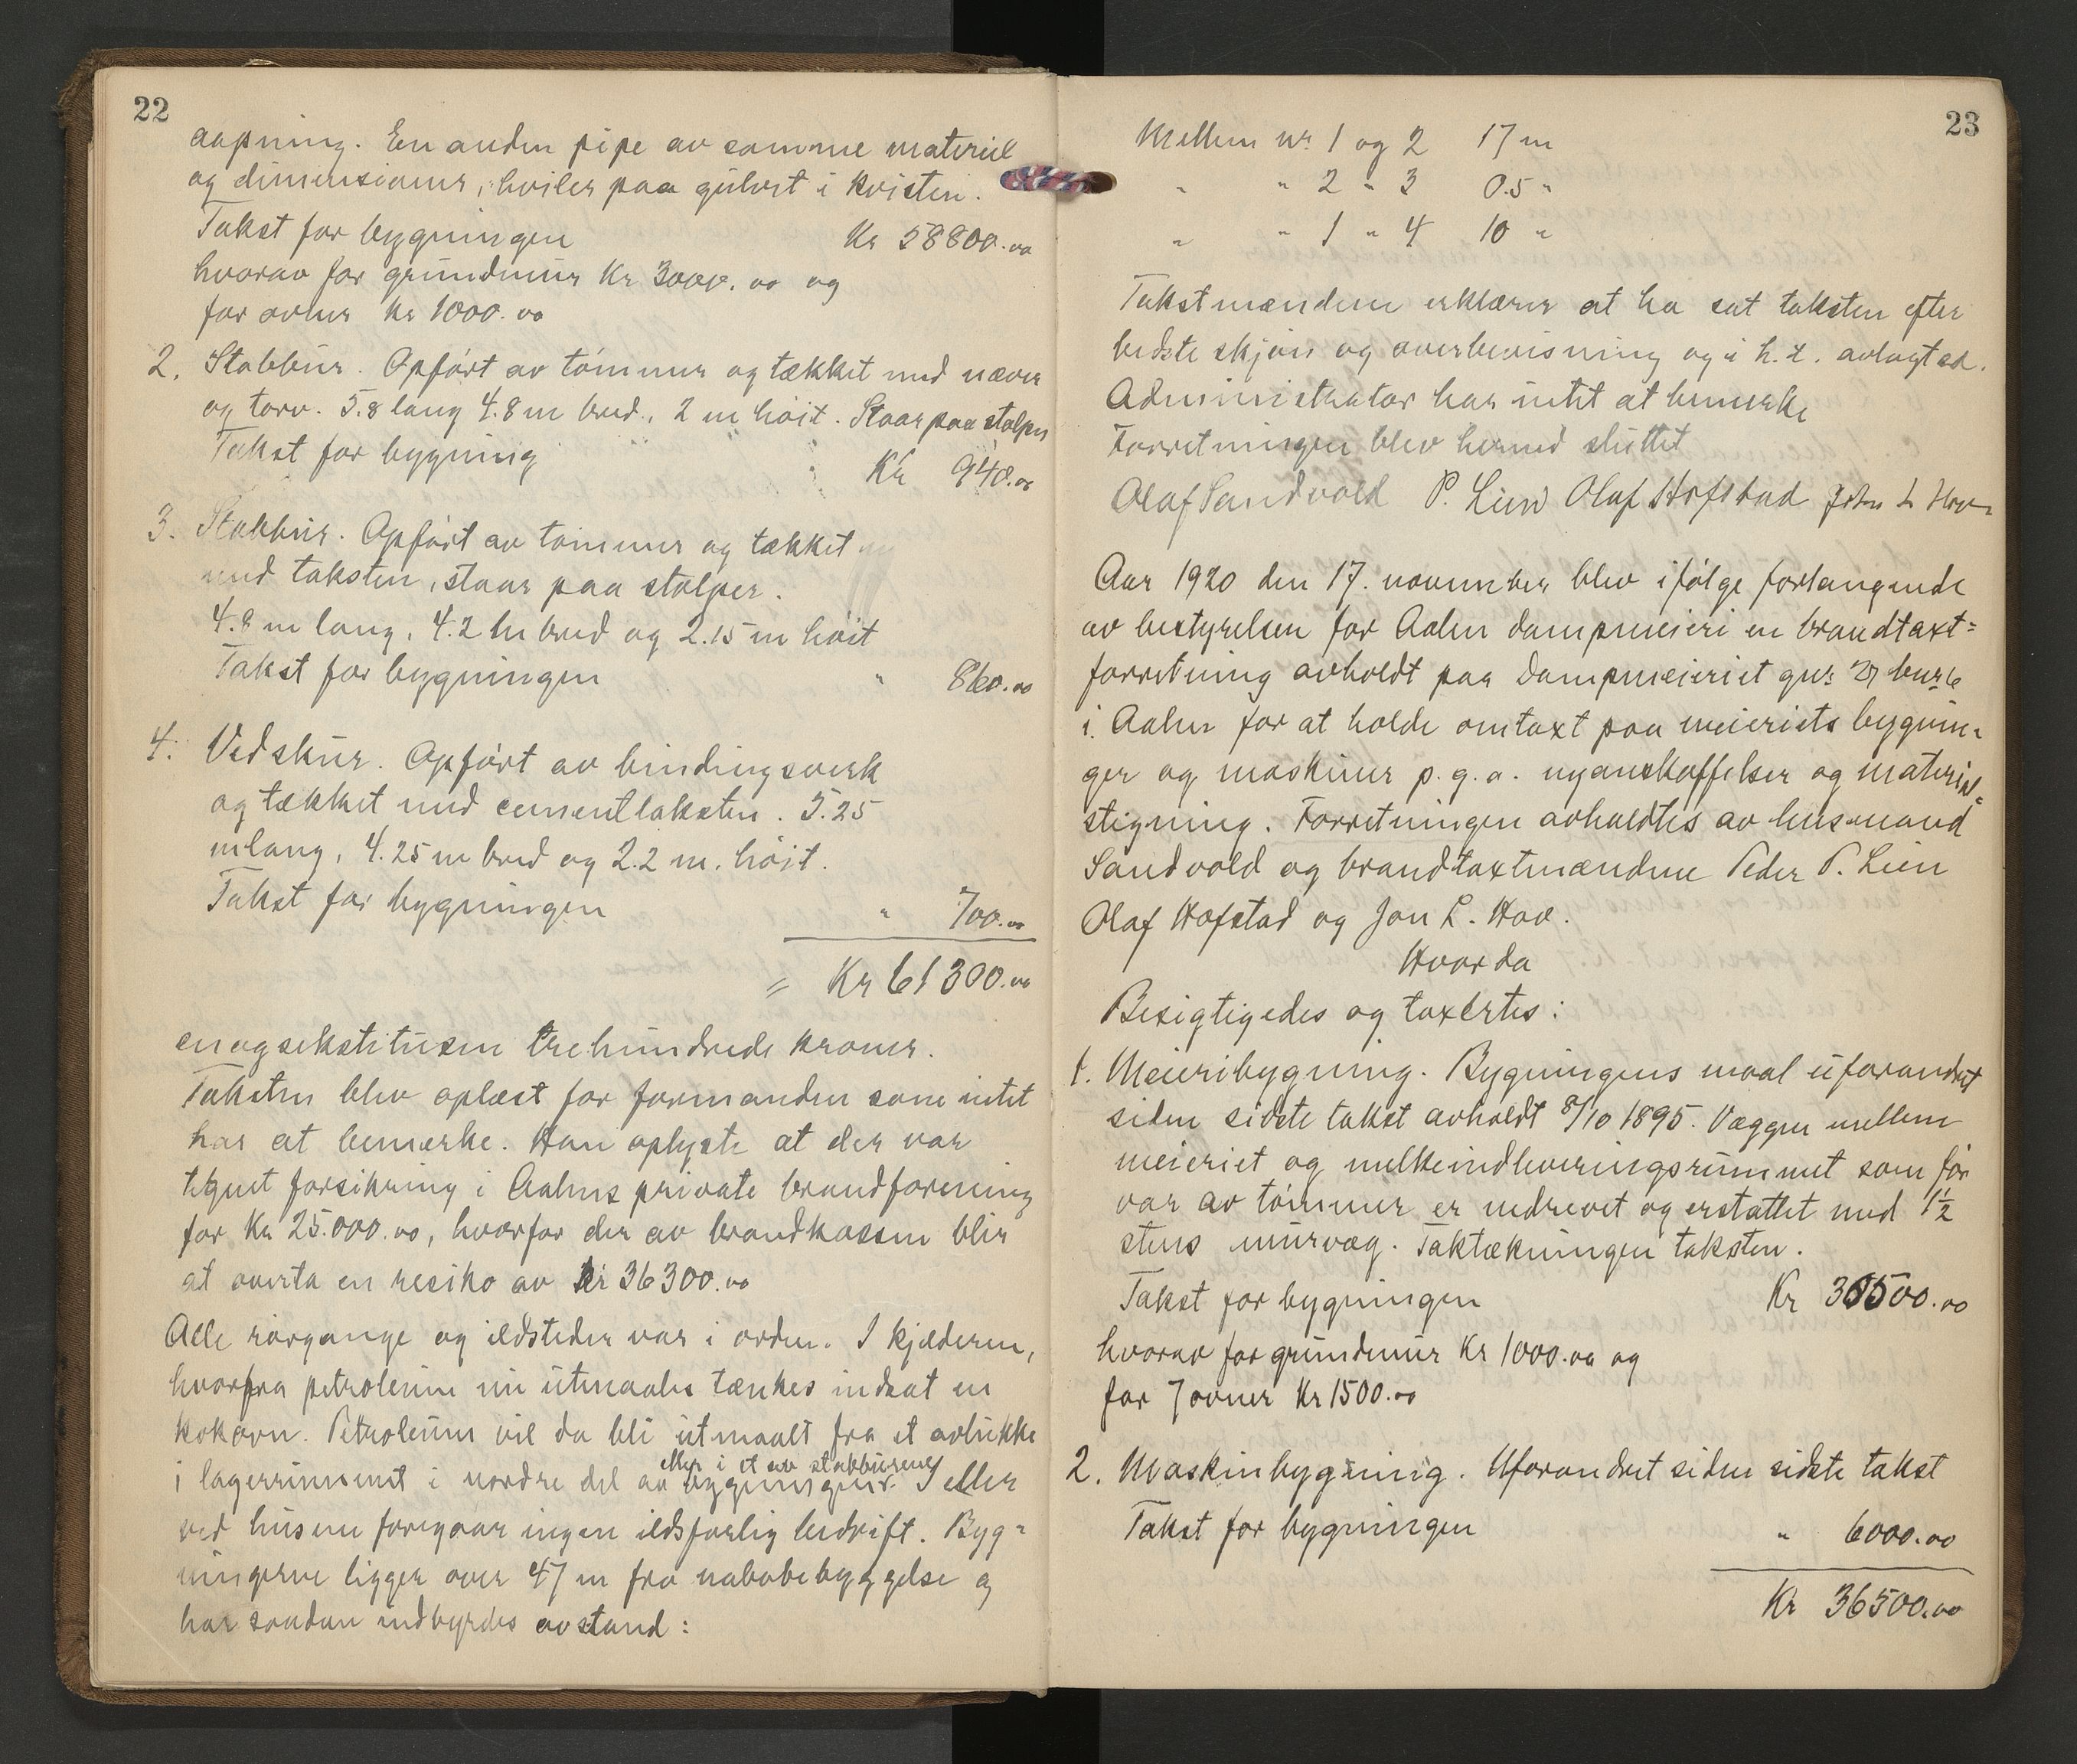 22
aapning. En anden pipe av samme materiel
og dimensioner, hviler paa gulvet i kvisten.
Takst for bygningen Kr 58800.00
hvorav for grundmur Kr 3000.00 og
for ovner Kr 1000.00
2. Stabbur. Opført av tømmer og tækket med næver
og torv. 5.8 lang 4.8 m bred, 2 m høit. Staar paa stolper
Takst for bygning Kr 940.00
3. Stabbur. Opført av tømmer og tækket
med taksten, staar paa stolper.
4.8 m lang, 4.2 m bred og 2.15 m høit
Takst for bygningen " 860.00
4. Vedskur. Opført av bindingsverk
og tækket med cementtaksten. 5.25
m lang, 4.25 m bred og 2.2 m. høit.
Takst for bygningen " 700.00
= Kr 61300.00
enogsekstitusen trehundrede kroner.
Taksten blev oplæst for formanden som intet
har at bemærke. Han oplyste at der var
tegnet forsikring i Aalens private brandforening
for Kr 25.000.00, hvorfor der av brandkassen blir
at overta en resiko av kr 36300.00
Alle rørgange og ildsteder var i orden. I kjælderen,
hvorfra petroleum nu utmaales tænkes indsat en
kokovn. Petroleum vil da bli utmaalt fra et avlukke
eller i et av stabburene
i lagerrummet i nordre del av bygningen. I eller
ved husene foregaar ingen ildsfarlig bedrift. Byg-
ningerne ligger over 47 m fra nabobebyggelse og
har saadan indbyrdes avstand:
23
Mellem nr. 1 og 2 17 m
" " 2 " 3 0.5 "
" " 1 " 4 10 "
Takstmændene erklærer at ha sat taksten efter
bedste skjøn og overbevisning og i h.t. avlagt ed.
Administrator har intet at bemerke
Forretningen blev hermed sluttet
Olaf Sandvold P. Lien Olaf Hofstad John L Hov
Aar 1920 den 17. november blev ifølge forlangende
av bestyrelsen for Aalen dampmeieri en brandtaxt-
forretning avholdt paa Dampmeieriet gnr. 27 bnr 6
i Aalen for at holde omtaxt paa meieriets bygnin-
ger og maskiner p.g.a. nyanskaffelser og materiel-
stigning. Forretningen avholdtes av lensmand
Sandvold og brandtaxtmændene Peder P. Lien
Olaf Hofstad og Jon L. Hov.
Hvorda
Besigtigedes og taxertes:
1. Meieribygning. Bygningens maal uforandret
siden sidste takst avholdt 8/10 1895. Væggen mellem
meieriet og melkeindleveringsrummet som før
var av tømmer er nedrevet og erstattet med 1½
stens murvæg. Taktækningen taksten.
Takst for bygningen Kr 30500.00
hvorav for grundmur Kr 1000.00 og
for 7 ovner Kr 1500.00
2. Maskinbygning. Uforandret siden sidste takst
Takst for bygningen " 6000.00
Kr 36500.00